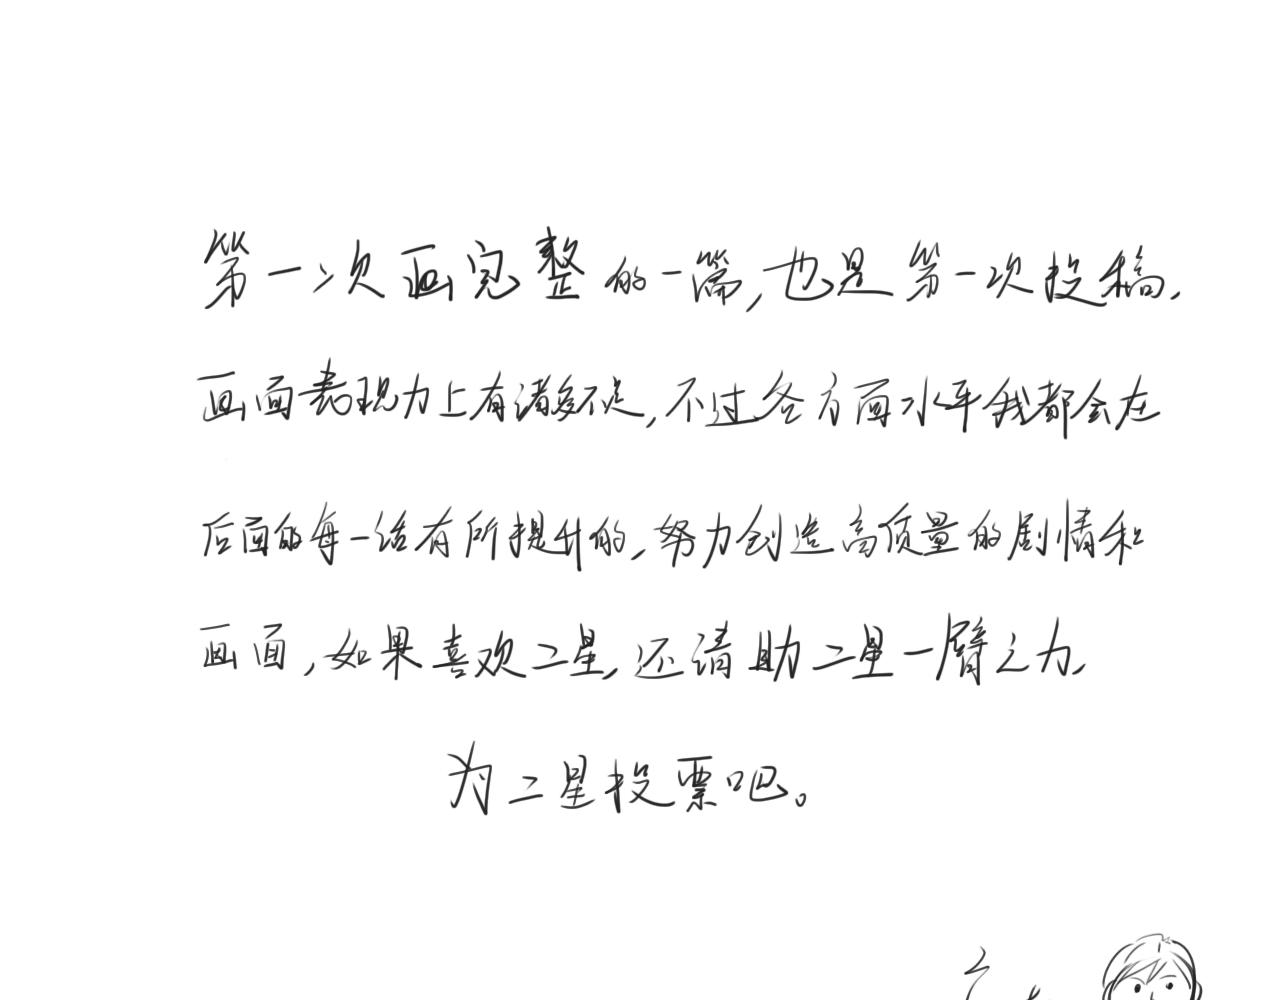 第一次画完整的一篇,也是第一次投稿,
画面表现力上有诸多不足,不过各方面水平我都会在
后面的每一话有所提升的,努力创造高质量的剧情和
画面,如果喜欢二星,还请助二星一臂之力,
为二星投票吧。